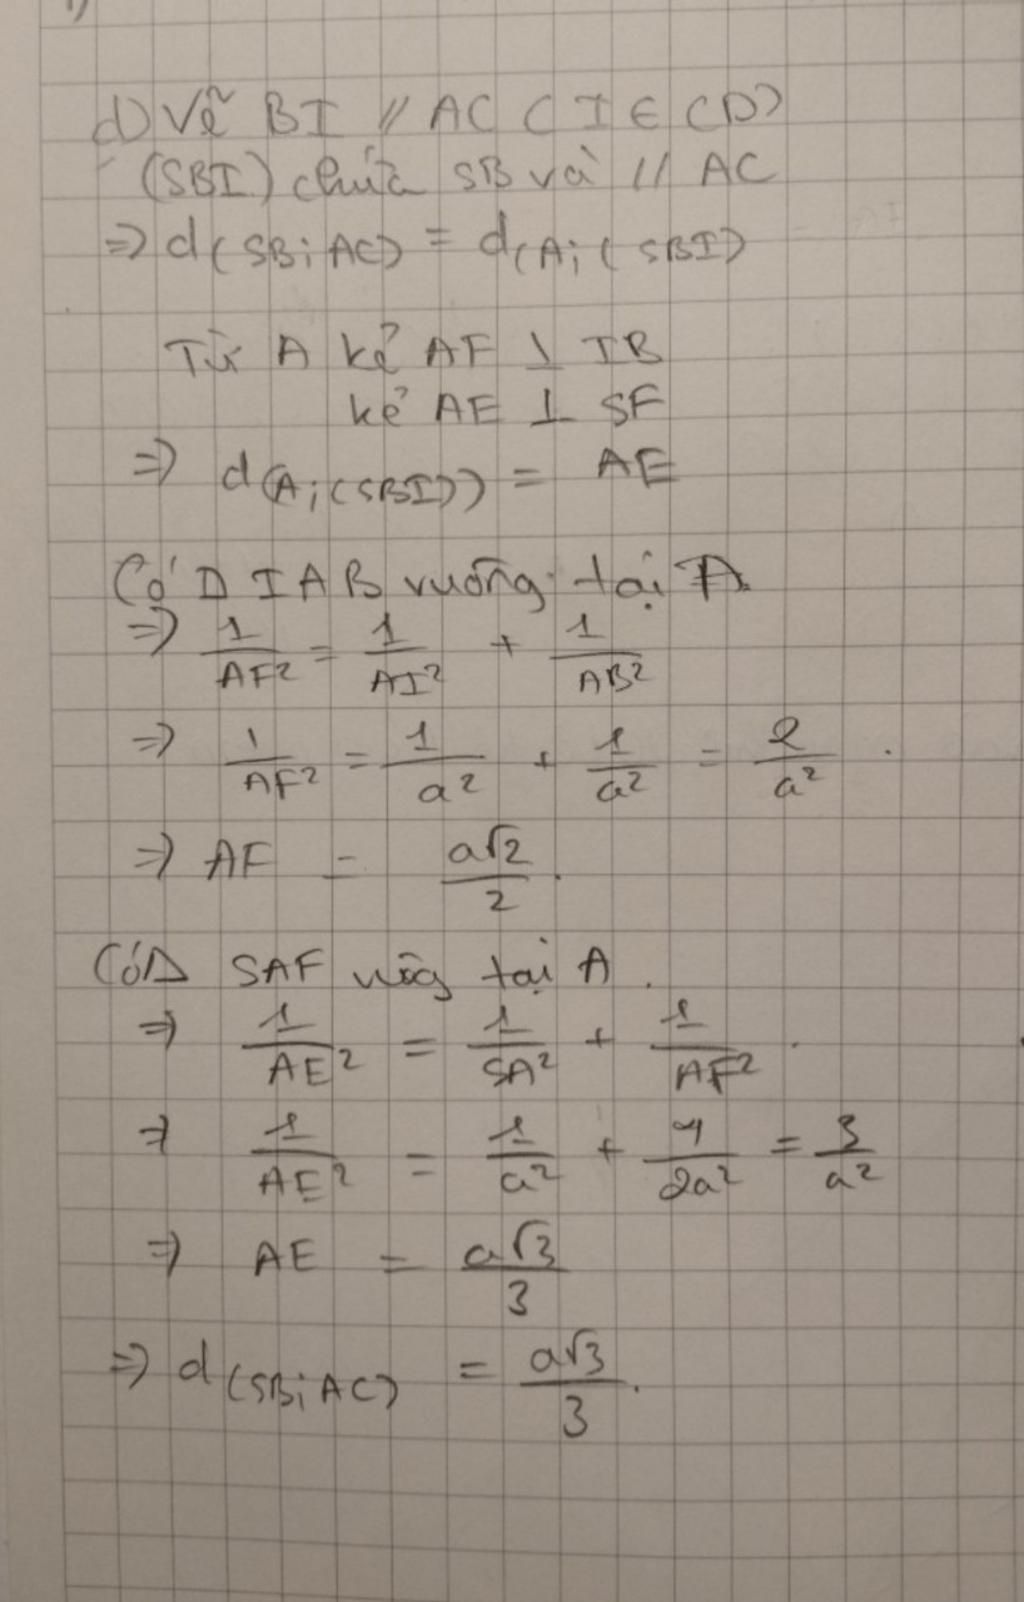 d) Vẽ BI // AC ( I ∈ CD)
(SBI) chứa SB và // AC
=> d(SB; AC) = d(A; (SBI)
Từ A kẻ AF ⊥ IB
kẻ AE ⊥ SF
=> d(A; (SBI)) = AE
Có Δ IAB vuông tại A.
=> 1/AF² = 1/AI² + 1/AB²
=> 1/AF² = 1/a² + 1/a² = 2/a².
=> AF = a√2/2.
Có Δ SAF vuông tại A.
=> 1/AE² = 1/SA² + 1/AF².
=> 1/AE² = 1/a² + 4/2a² = 3/a²
=> AE = a√3/3
=> d(SB; AC) = a√3/3.